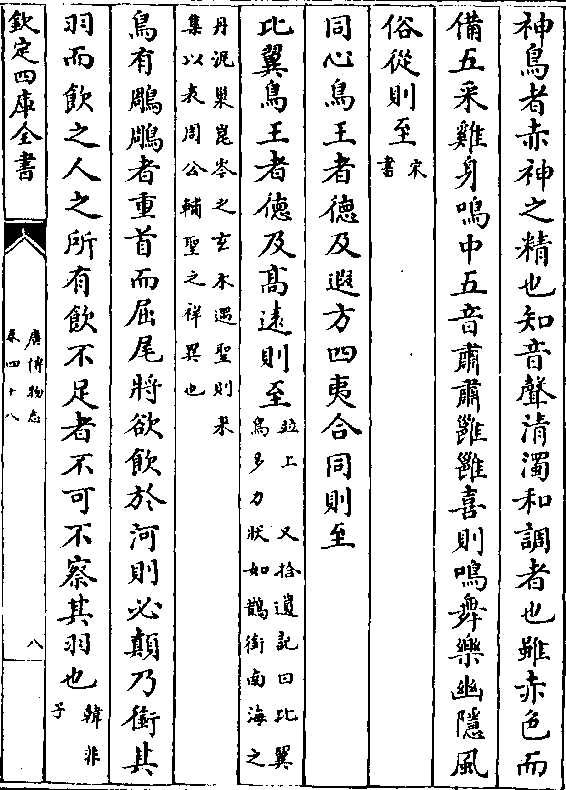 神鳥者赤神之精也知音聲清濁和調者也雖赤色而
備五采雞身鳴中五音肅肅雝雝喜則鳴舞樂幽隱風
俗從則至宋
書
同心鳥王者德及遐方四夷合同則至
比翼鳥王者德及髙遠則至竝上 又拾遺記曰比翼
鳥多力狀如鵲銜南海之
丹泥巢崑岑之玄木遇聖則来
集以表周公輔聖之祥異也
鳥有䎐䎐者重首而屈尾將欲飲於河則必顛乃銜其
羽而飲之人之所有飲不足者不可不察其羽也韓非
子
欽定四庫全書
廣博物志
卷四十八
八